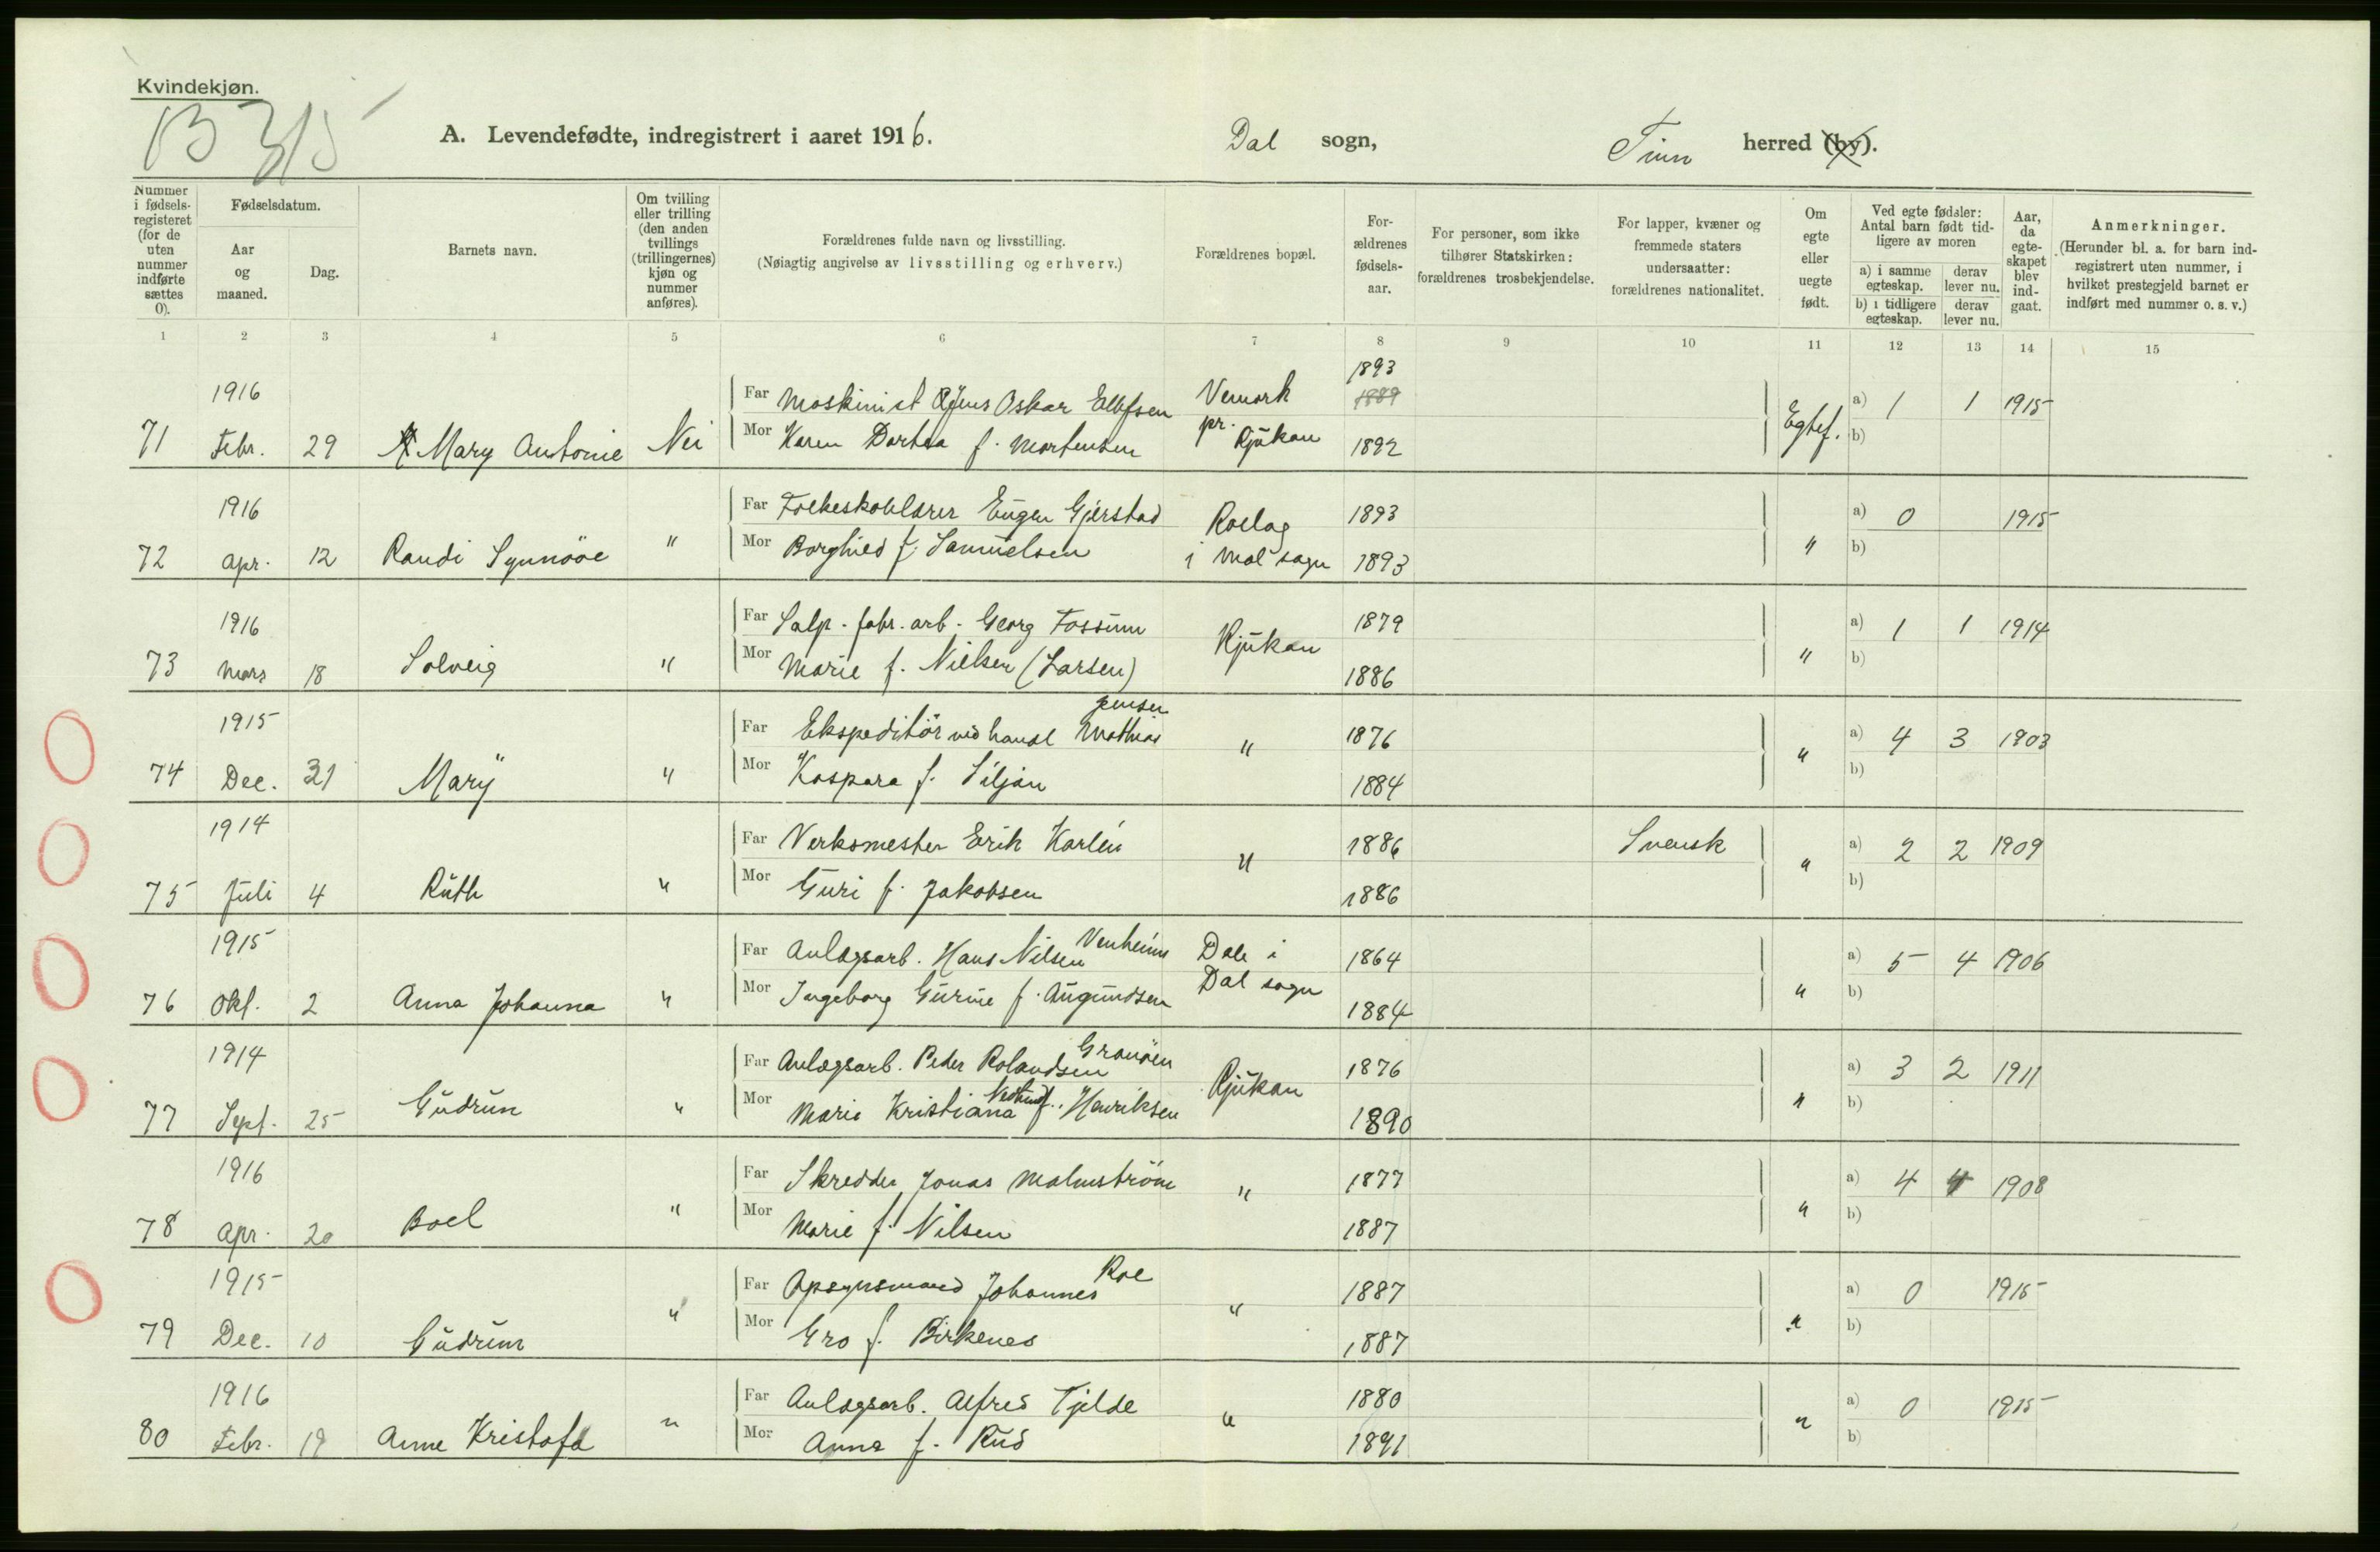 Kvindekjøn.
B 315
A. Levendefødte, indregistrert i aaret 1916. Dal sogn, Tinn herred (by).
Nummer i fødselsregisteret (for de uten nummer indførte sættes 0).
Fødselsdatum.
Aar og maaned.
Dag.
Barnets navn.
Om tvilling eller trilling (den anden tvillings (trillingernes) kjøn og nummer anføres).
Forældrenes fulde navn og livsstilling.
(Nøiagtig angivelse av livsstilling og erhverv.)
Forældrenes bopæl.
Forældrenes fødselsaar.
For personer, som ikke tilhører Statskirken: forældrenes trosbekjendelse.
For lapper, kvæner og fremmede staters undersaatter: forældrenes nationalitet.
Om egte eller uegte født.
Ved egte fødsler: Antal barn født tidligere av moren
a) i samme egteskap. derav lever nu.
b) i tidligere egteskap. derav lever nu.
Aar, da egteskapet blev indgaat.
Anmerkninger.
(Herunder bl. a. for barn indregistrert uten nummer, i hvilket prestegjeld barnet er indført med nummer o. s. v.)
1 2 3 4 5 6 7 8 9 10 11 12 13 14 15
1893
1916 Far Maskinist Jens Oskar Ellefsen Vemork 1889 a) 1 1 1915
71 Febr. 29 Mary Antonie Nei Mor Karen Dortea f. Mortensen pr. Rjukan 1892 Egtef. b)
1916 Far Folkeskolelærer Eugen Gjerstad Rollag 1893 a) 0 1915
72 Apr. 12 Randi Synnöve " Mor Borghild f. Samuelsen i Mæl sogn 1893 " b)
1916 Far Salp. fabr. arb. Georg Fossum Rjukan 1879 a) 1 1 1914
73 Mars 18 Solveig " Mor Marie f. Nielsen (Larsen) 1886 " b)
Jensen
1915 Far Ekspeditör ved handl Mathias " 1876 a) 4 3 1903
74 Dec. 31 Mary " Mor Kaspara f. Siljan 1884 " b)
1914 Far Verksmester Erik Karlén " 1886 Svensk a) 2 2 1909
75 Juli 4 Ruth " Mor Guri f. Jakobsen 1886 " b)
1915 Far Anlægsarb. Hans Nilsen Venheim Dale i 1864 a) 5 4 1906
76 Okt. 2 Anna Johanna " Mor Ingeborg Gurine f. Augundsen Dal sogn 1884 " b)
1914 Far Anlægsarb. Peder Rolandsen Granöen Rjukan 1876 a) 3 2 1911
77 Sept. 25 Gudrun " Mor Marie Kristiana f. Henriksen 1890 " b)
1916 Far Skredder Jonas Malmström " 1877 a) 4 4 1908
78 Apr. 20 Boel " Mor Marie f. Nilsen 1887 " b)
1915 Far Opsynsmand Johannes Roe " 1887 a) 0 1915
79 Dec. 10 Gudrun " Mor Gro f. Birkenes 1887 " b)
1916 Far Anlægsarb. Alfred Tjelde " 1880 a) 0 1915
80 Febr. 19 Anne Kristofa " Mor Anna f. Rud 1891 " b)